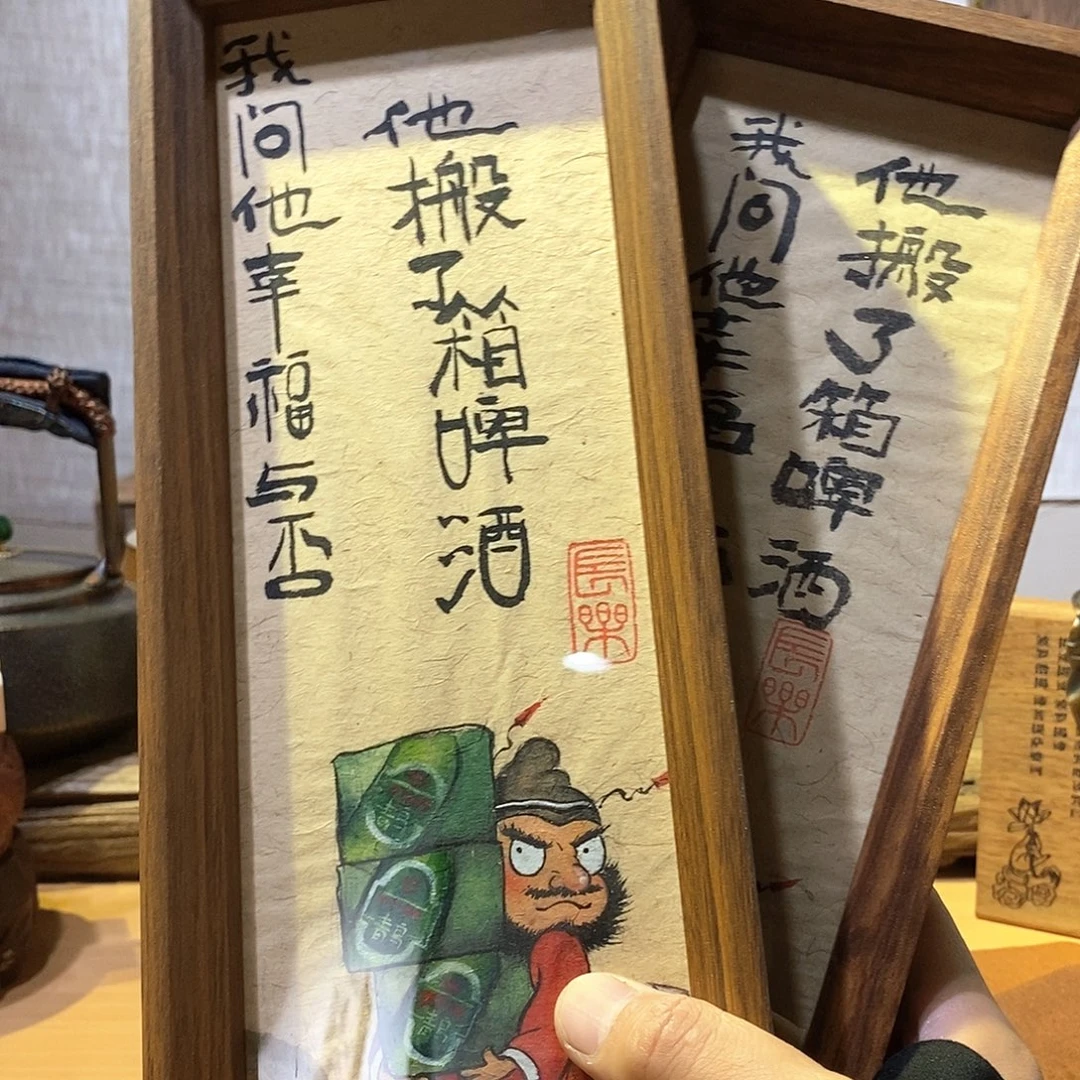 我问他幸福与否
他搬了箱啤酒
長樂
我问他幸
他搬了箱啤酒
長樂